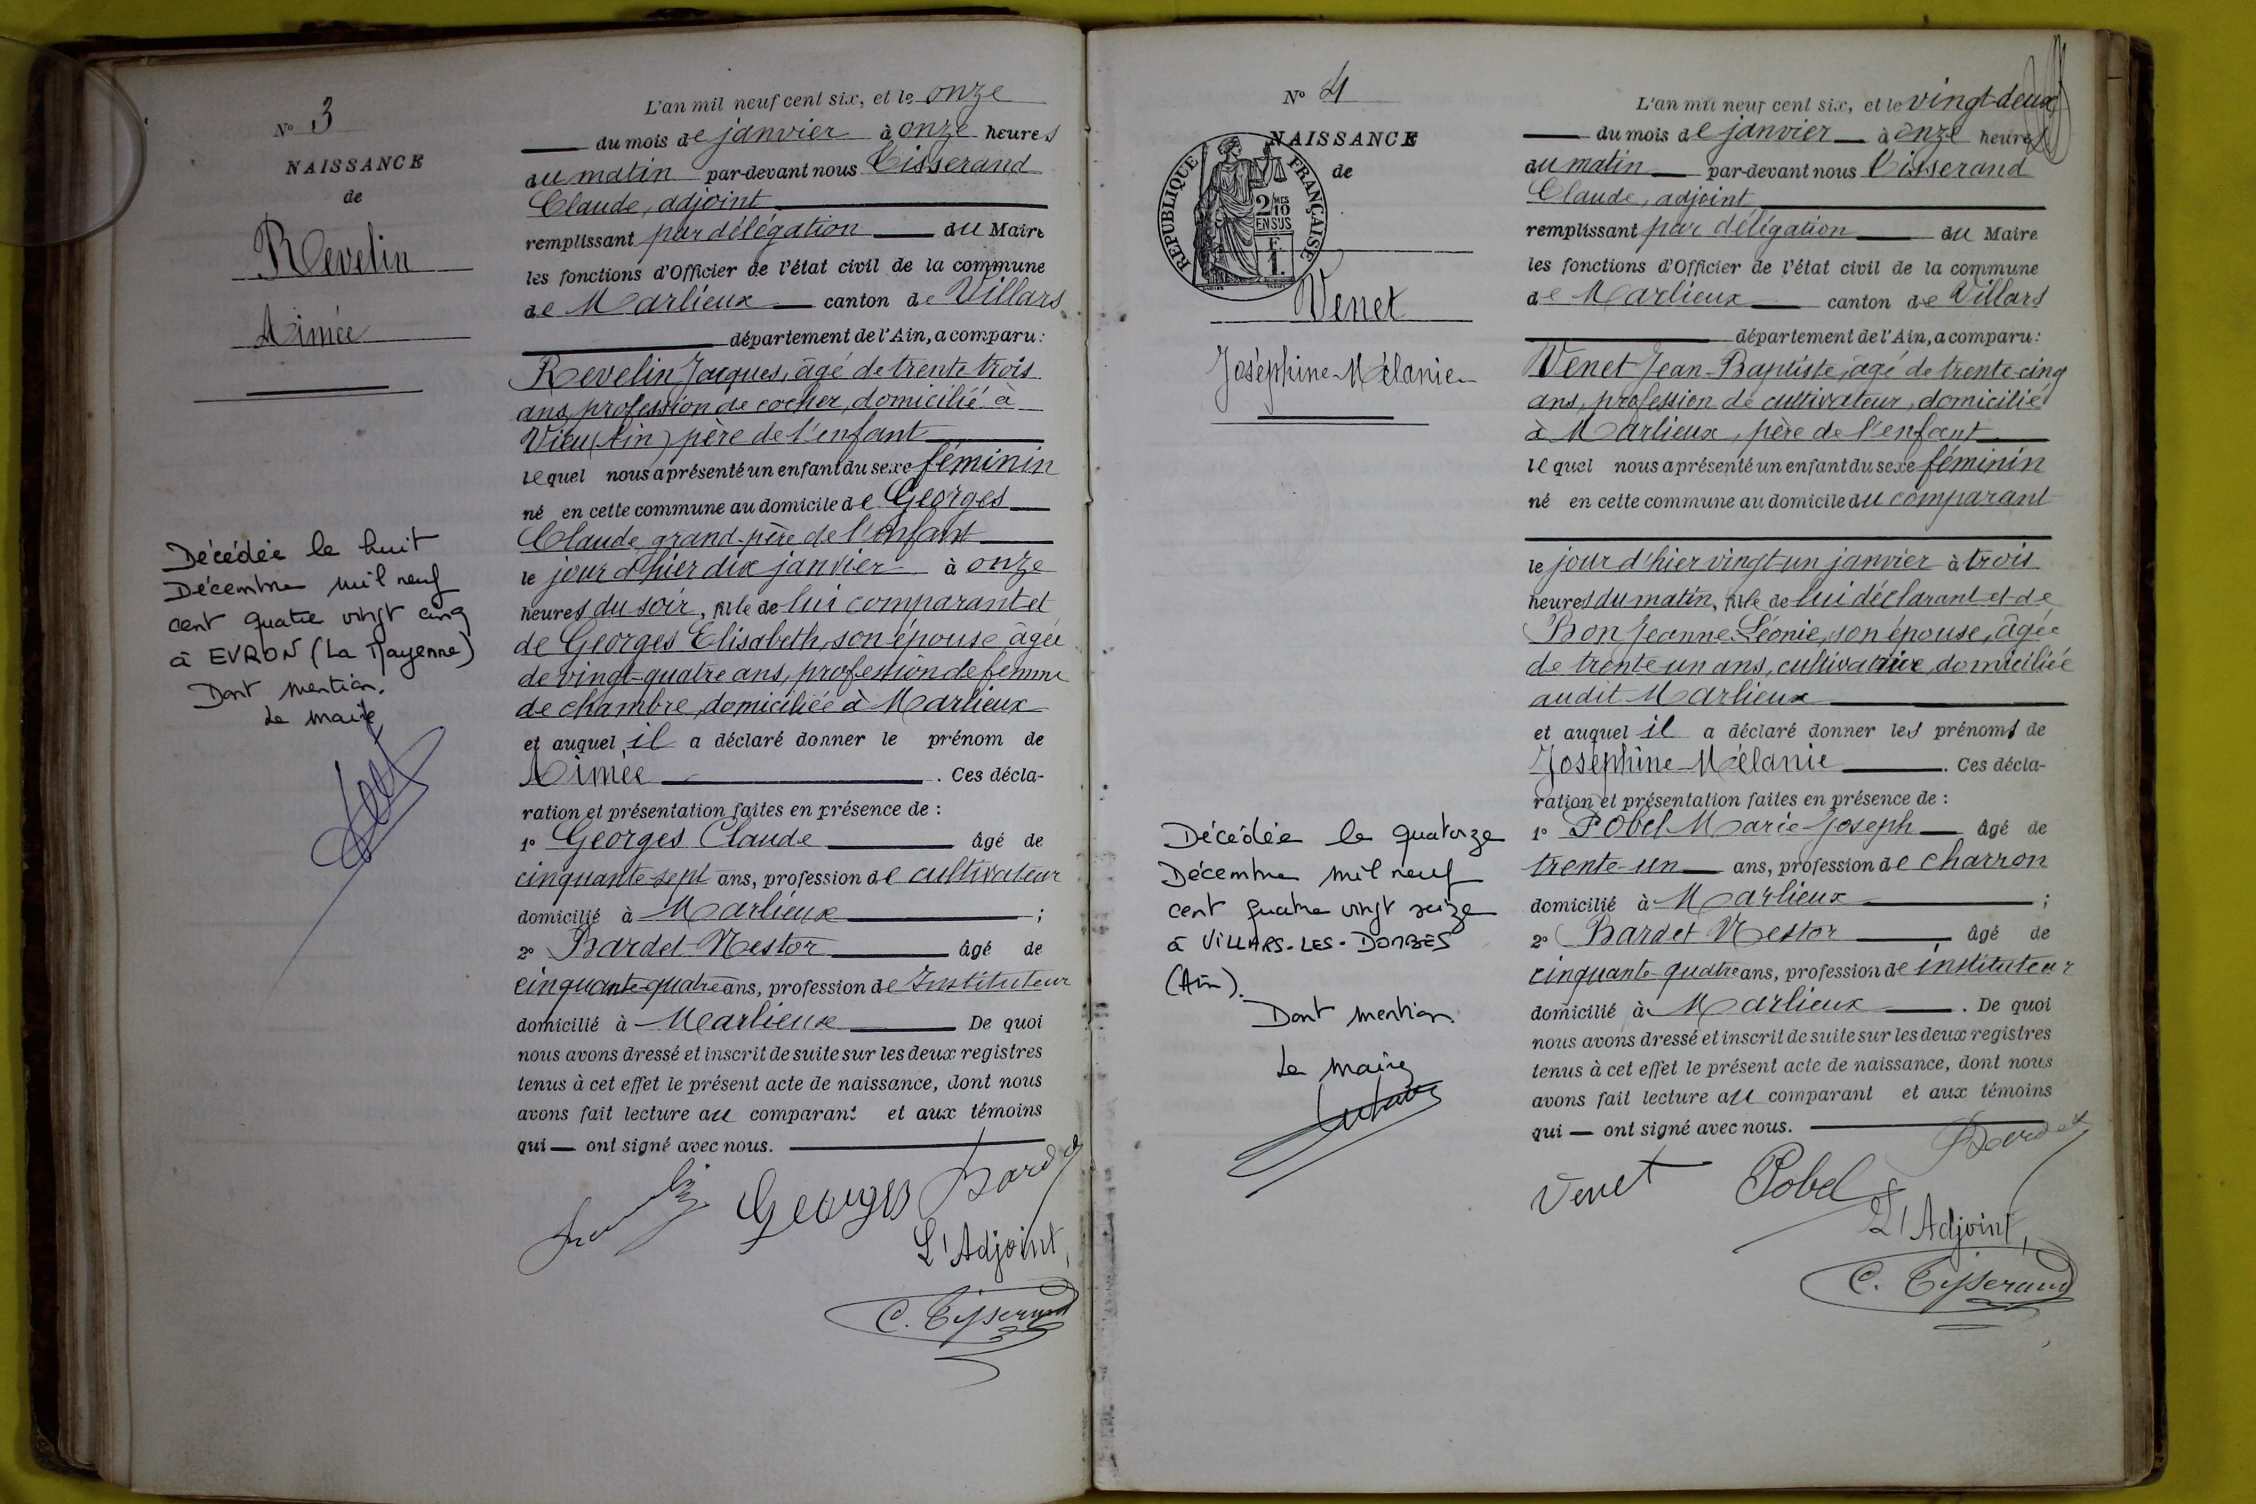 N° 3
NAISSANCE
de
Revelin
Aimée
Décédée le huit
Décembre mil neuf
cent quatre vingt cinq
à EVRON (La Mayenne)
Dont mention.
Le maire
L'an mil neuf cent six, et le onze
du mois de janvier à onze heures
du matin par-devant nous Tisserand
Claude, adjoint
remplissant par délégation du Maire
les fonctions d'Officier de l'état civil de la commune
de Marlieux canton de Villars
département de l'Ain, a comparu:
Revelin Jacques, âgé de trente trois
ans, profession de cocher, domicilié à
Vieu (Ain) père de l'enfant
lequel nous a présenté un enfant du sexe féminin
né en cette commune au domicile de Georges
Claude grand-père de l'enfant
le jour d'hier dix janvier à onze
heures du soir, fille de lui comparant et
de Georges Elisabeth, son épouse âgée
de vingt-quatre ans, profession de femme
de chambre, domiciliée à Marlieux
et auquel il a déclaré donner le prénom de
Aimée . Ces décla-
ration et présentation faites en présence de :
1° Georges Claude âgé de
cinquante-sept ans, profession de cultivateur
domicilié à Marlieux ;
2° Bardet Nestor âgé de
cinquante-quatre ans, profession de Instituteur
domicilié à Marlieux De quoi
nous avons dressé et inscrit de suite sur les deux registres
tenus à cet effet le présent acte de naissance, dont nous
avons fait lecture au comparant et aux témoins
qui — ont signé avec nous.
Georges Bardet
L'Adjoint,
C. Tisserand
N° 4
NAISSANCE
de
RÉPUBLIQUE FRANÇAISE
2/10
EN SUS
Venet
Joséphine-Mélanie
Décédée le quatorze
Décembre mil neuf
cent quatre vingt seize
à VILLARS-LES-DOMBES
(Ain).
Dont mention
Le maire
L'an mil neuf cent six, et le vingt-deux
du mois de janvier à onze heures
du matin par-devant nous Tisserand
Claude, adjoint
remplissant par délégation du Maire
les fonctions d'Officier de l'état civil de la commune
de Marlieux canton de Villars
département de l'Ain, a comparu:
Venet Jean-Baptiste, âgé de trente-cinq
ans, profession de cultivateur, domicilié
à Marlieux, père de l'enfant
lequel nous a présenté un enfant du sexe féminin
né en cette commune au domicile du comparant
le jour d'hier vingt-un janvier à trois
heures du matin, fille de lui déclarant et de
Bon Jeanne-Léonie, son épouse, âgée
de trente-un ans, cultivatrice, domiciliée
audit Marlieux
et auquel il a déclaré donner les prénoms de
Joséphine-Mélanie . Ces décla-
ration et présentation faites en présence de :
1° Pobel Marie-Joseph âgé de
trente-un ans, profession de charron
domicilié à Marlieux ;
2° Bardet Nestor âgé de
cinquante-quatre ans, profession de instituteur
domicilié à Marlieux . De quoi
nous avons dressé et inscrit de suite sur les deux registres
tenus à cet effet le présent acte de naissance, dont nous
avons fait lecture au comparant et aux témoins
qui — ont signé avec nous.
Venet Pobel Bardet
L'Adjoint,
C. Tisserand